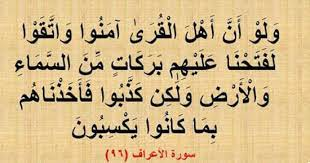 وَلَوْ أَنَّ أَهْلَ الْقُرَىٰ آمَنُوا وَاتَّقَوْا
لَفَتَحْنَا عَلَيْهِم بَرَكَاتٍ مِّنَ السَّمَاءِ
وَالْأَرْضِ وَلَٰكِن كَذَّبُوا فَأَخَذْنَاهُم
بِمَا كَانُوا يَكْسِبُونَ
سورة الأعراف (٩٦)